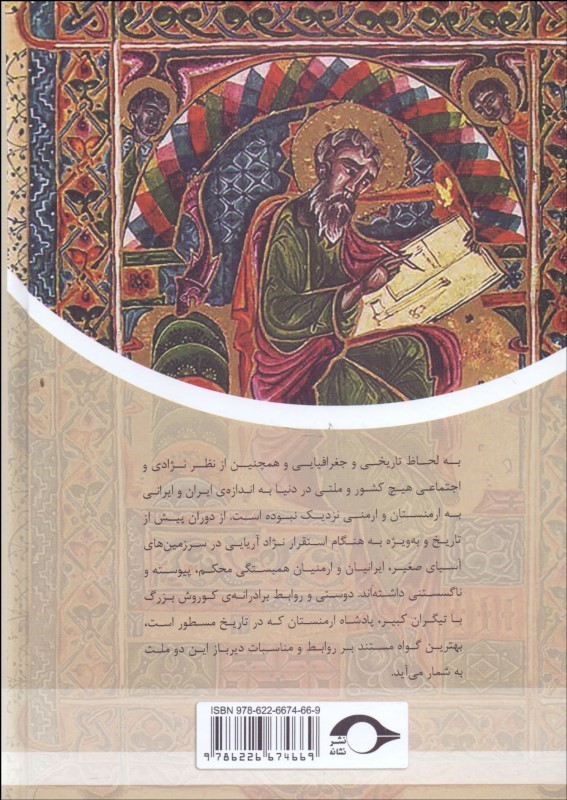 به لحاظ تاریخی و جغرافیایی و همچنین از نظر نژادی و
اجتماعی هیچ کشور و ملتی در دنیا به اندازه‌ی ایران و ایرانی
به ارمنستان و ارمنی نزدیک نبوده است. از دوران پیش از
تاریخ و به‌ویژه به هنگام استقرار نژاد آریایی در سرزمین‌های
آسیای صغیر، ایرانیان و ارمنیان همبستگی محکم، پیوسته و
ناگسستنی داشته‌اند. دوستی و روابط برادرانه‌ی کوروش بزرگ
با تیگران کبیر، پادشاه ارمنستان که در تاریخ مسطور است،
بهترین گواه مستند بر روابط و مناسبات دیرباز این دو ملت
به شمار می‌آید.
ISBN 978-622-6674-66-9
9 786226 674669
نشر
نشانه